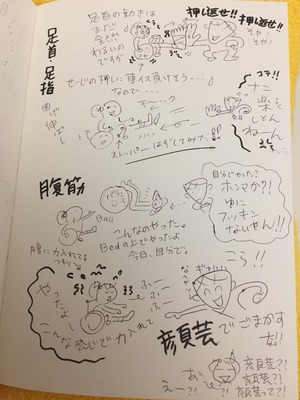 足首・足指
曲げ伸ばし
足首の動きは
まだ
全然
わるいの
ですが
押し返せ!!押し返せ!!
そや!
そや!
せーじの押しに車イス負けそう・・・♪
なので・・・
コラ!!
ナニ
楽
しとん
ねーん
ストッパーはずしてみた!!
腹筋
Ball
こんなのやった。
Bedの上でやったよ
今日、自分で。
自分でやった?
ホンマか?!
ゆに
フッキン
ないやん!!
こら!!
腹に力入れてる
つもり
やったよ
こんな感じで力入れて
ふー
ふー
ふー
顔芸でごまかす
な!!
え ー?!
顔芸?!
顔芸?!
顔芸って?!